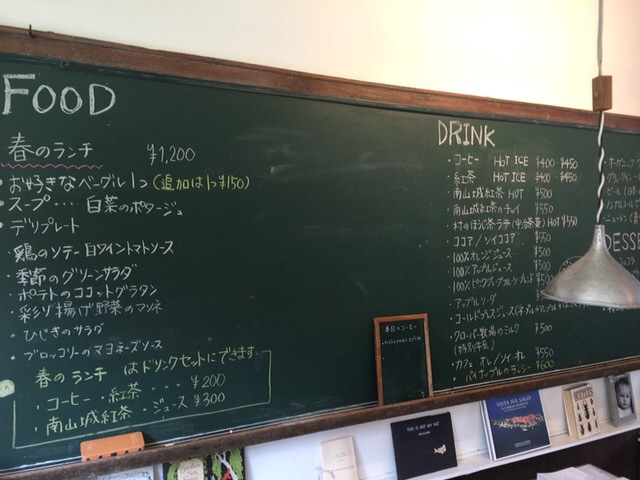 FOOD
春のランチ ¥1,200
・お好きなベーグル1つ (追加は1つ¥150)
・スープ… 白菜のポタージュ
・デリプレート
鶏のソテー 白ワイントマトソース
・季節のグリーンサラダ
・ポテトのココットグラタン
・彩り揚げ野菜のマリネ
・ひじきのサラダ
・ブロッコリーのマヨネーズソース
春のランチ はドリンクセットにできます
・コーヒー・紅茶 ・・・・ ¥200
・南山城紅茶・ジュース ¥300
DRINK
・コーヒー HOT ICE ¥400 ¥450
・紅茶 HOT ICE ¥400 ¥450
・南山城紅茶 HOT ¥500
・南山城紅茶のチャイ ¥550
・村のほうじ茶ラテ HOT ¥550
・ココア/ソイココア ¥550
・100%オレンジジュース ¥500
・100%アップルジュース ¥500
・アップルソーダ
・クローバー牧場のミルク ¥500
(特別牛乳)
・カフェオレ/ソイオレ ¥550
・パイナップルのラッシー ¥600
本日のコーヒー
VISTA SUL LAGO
THIS IS NOT MY HAT